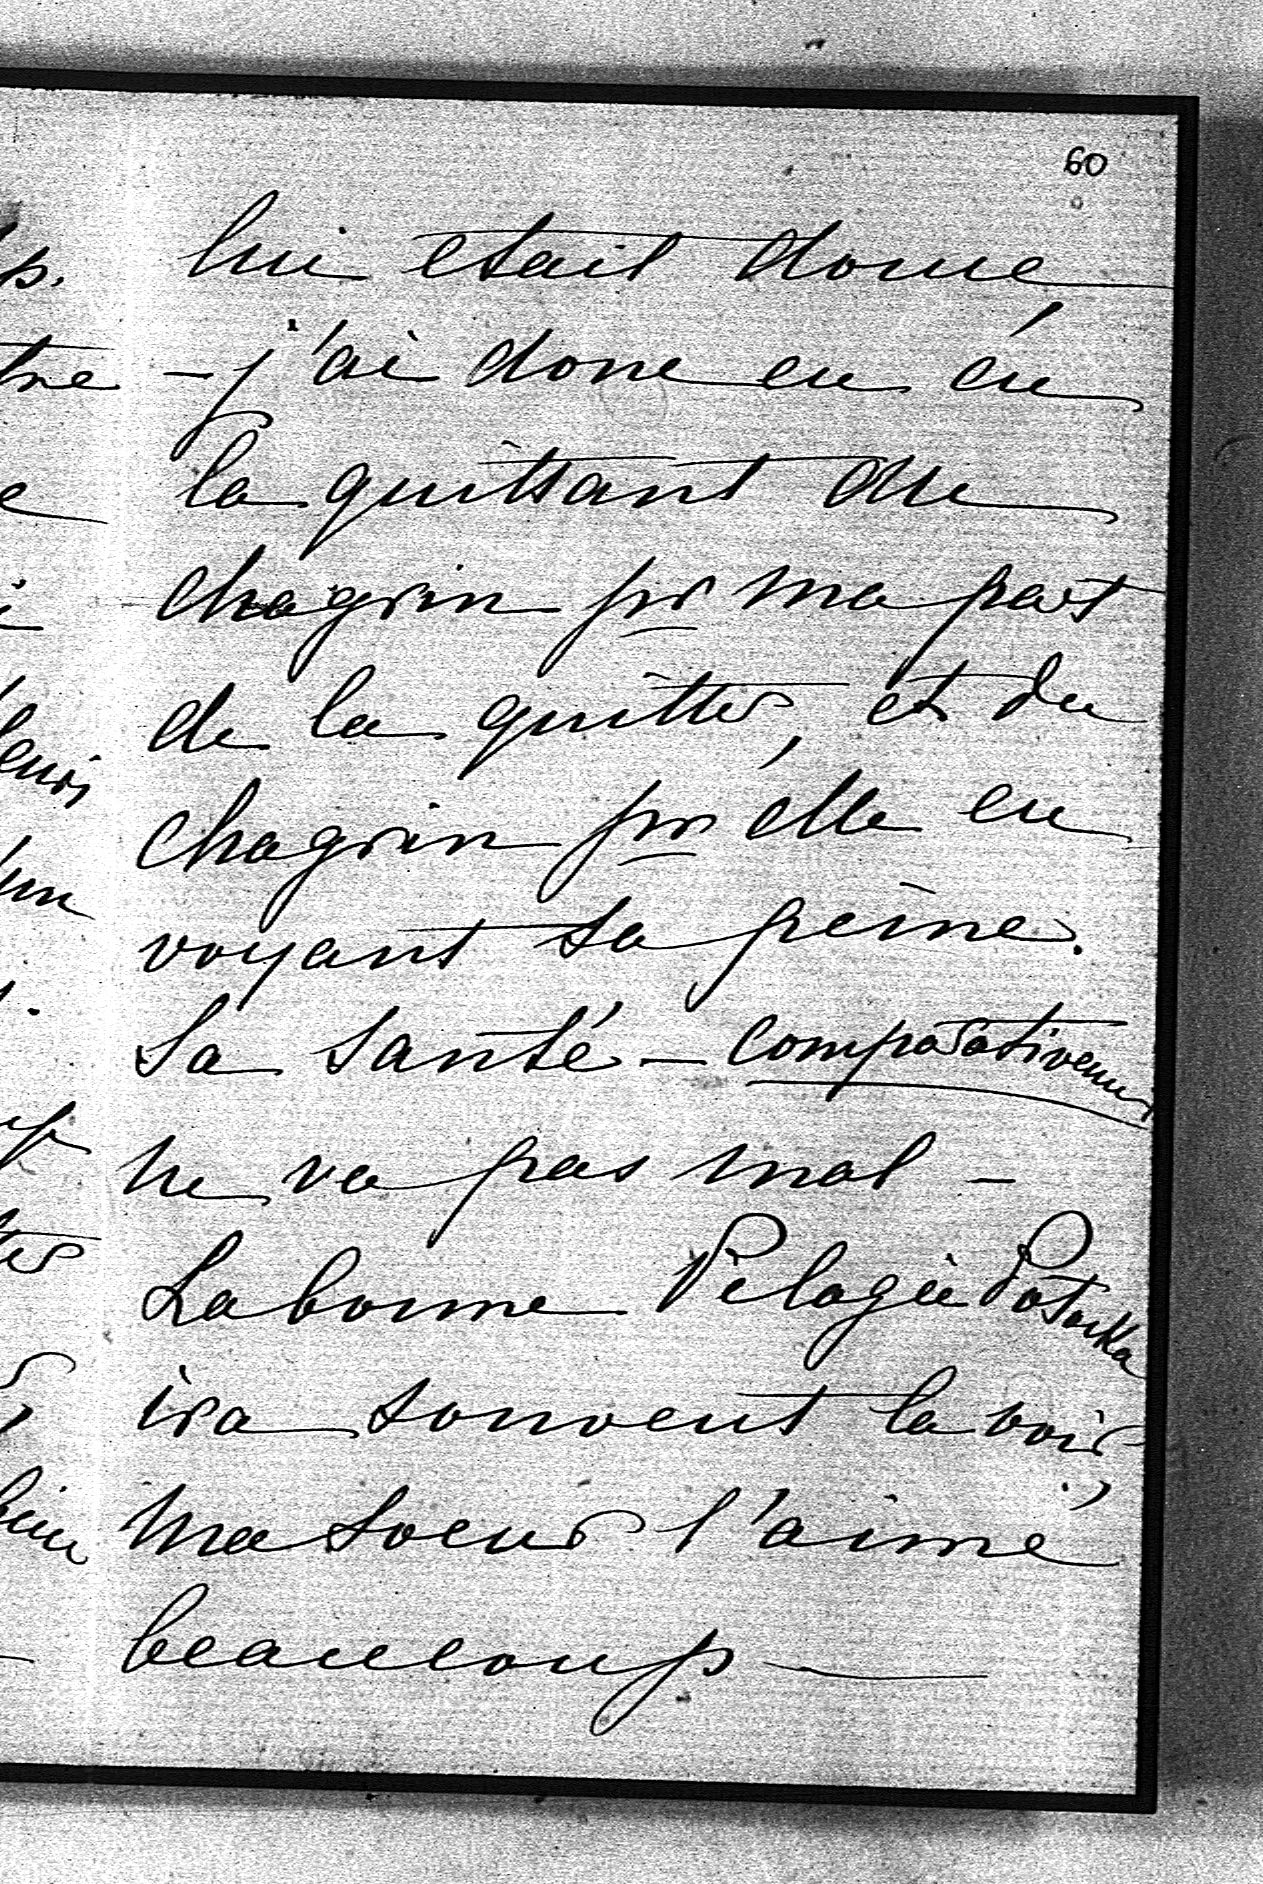 60
lui etait donné
ts. — j'ai donc eu en
tre la quittant du
e chagrin pr ma part
de la quitter, et du
chagrin pr elle en
voyant sa peine.
Sa santé — comparativement
ne va pas mal —
La bonne Pélagie Potocka
ira souvent la voir
Ma soeur l'aime
beaucoup —